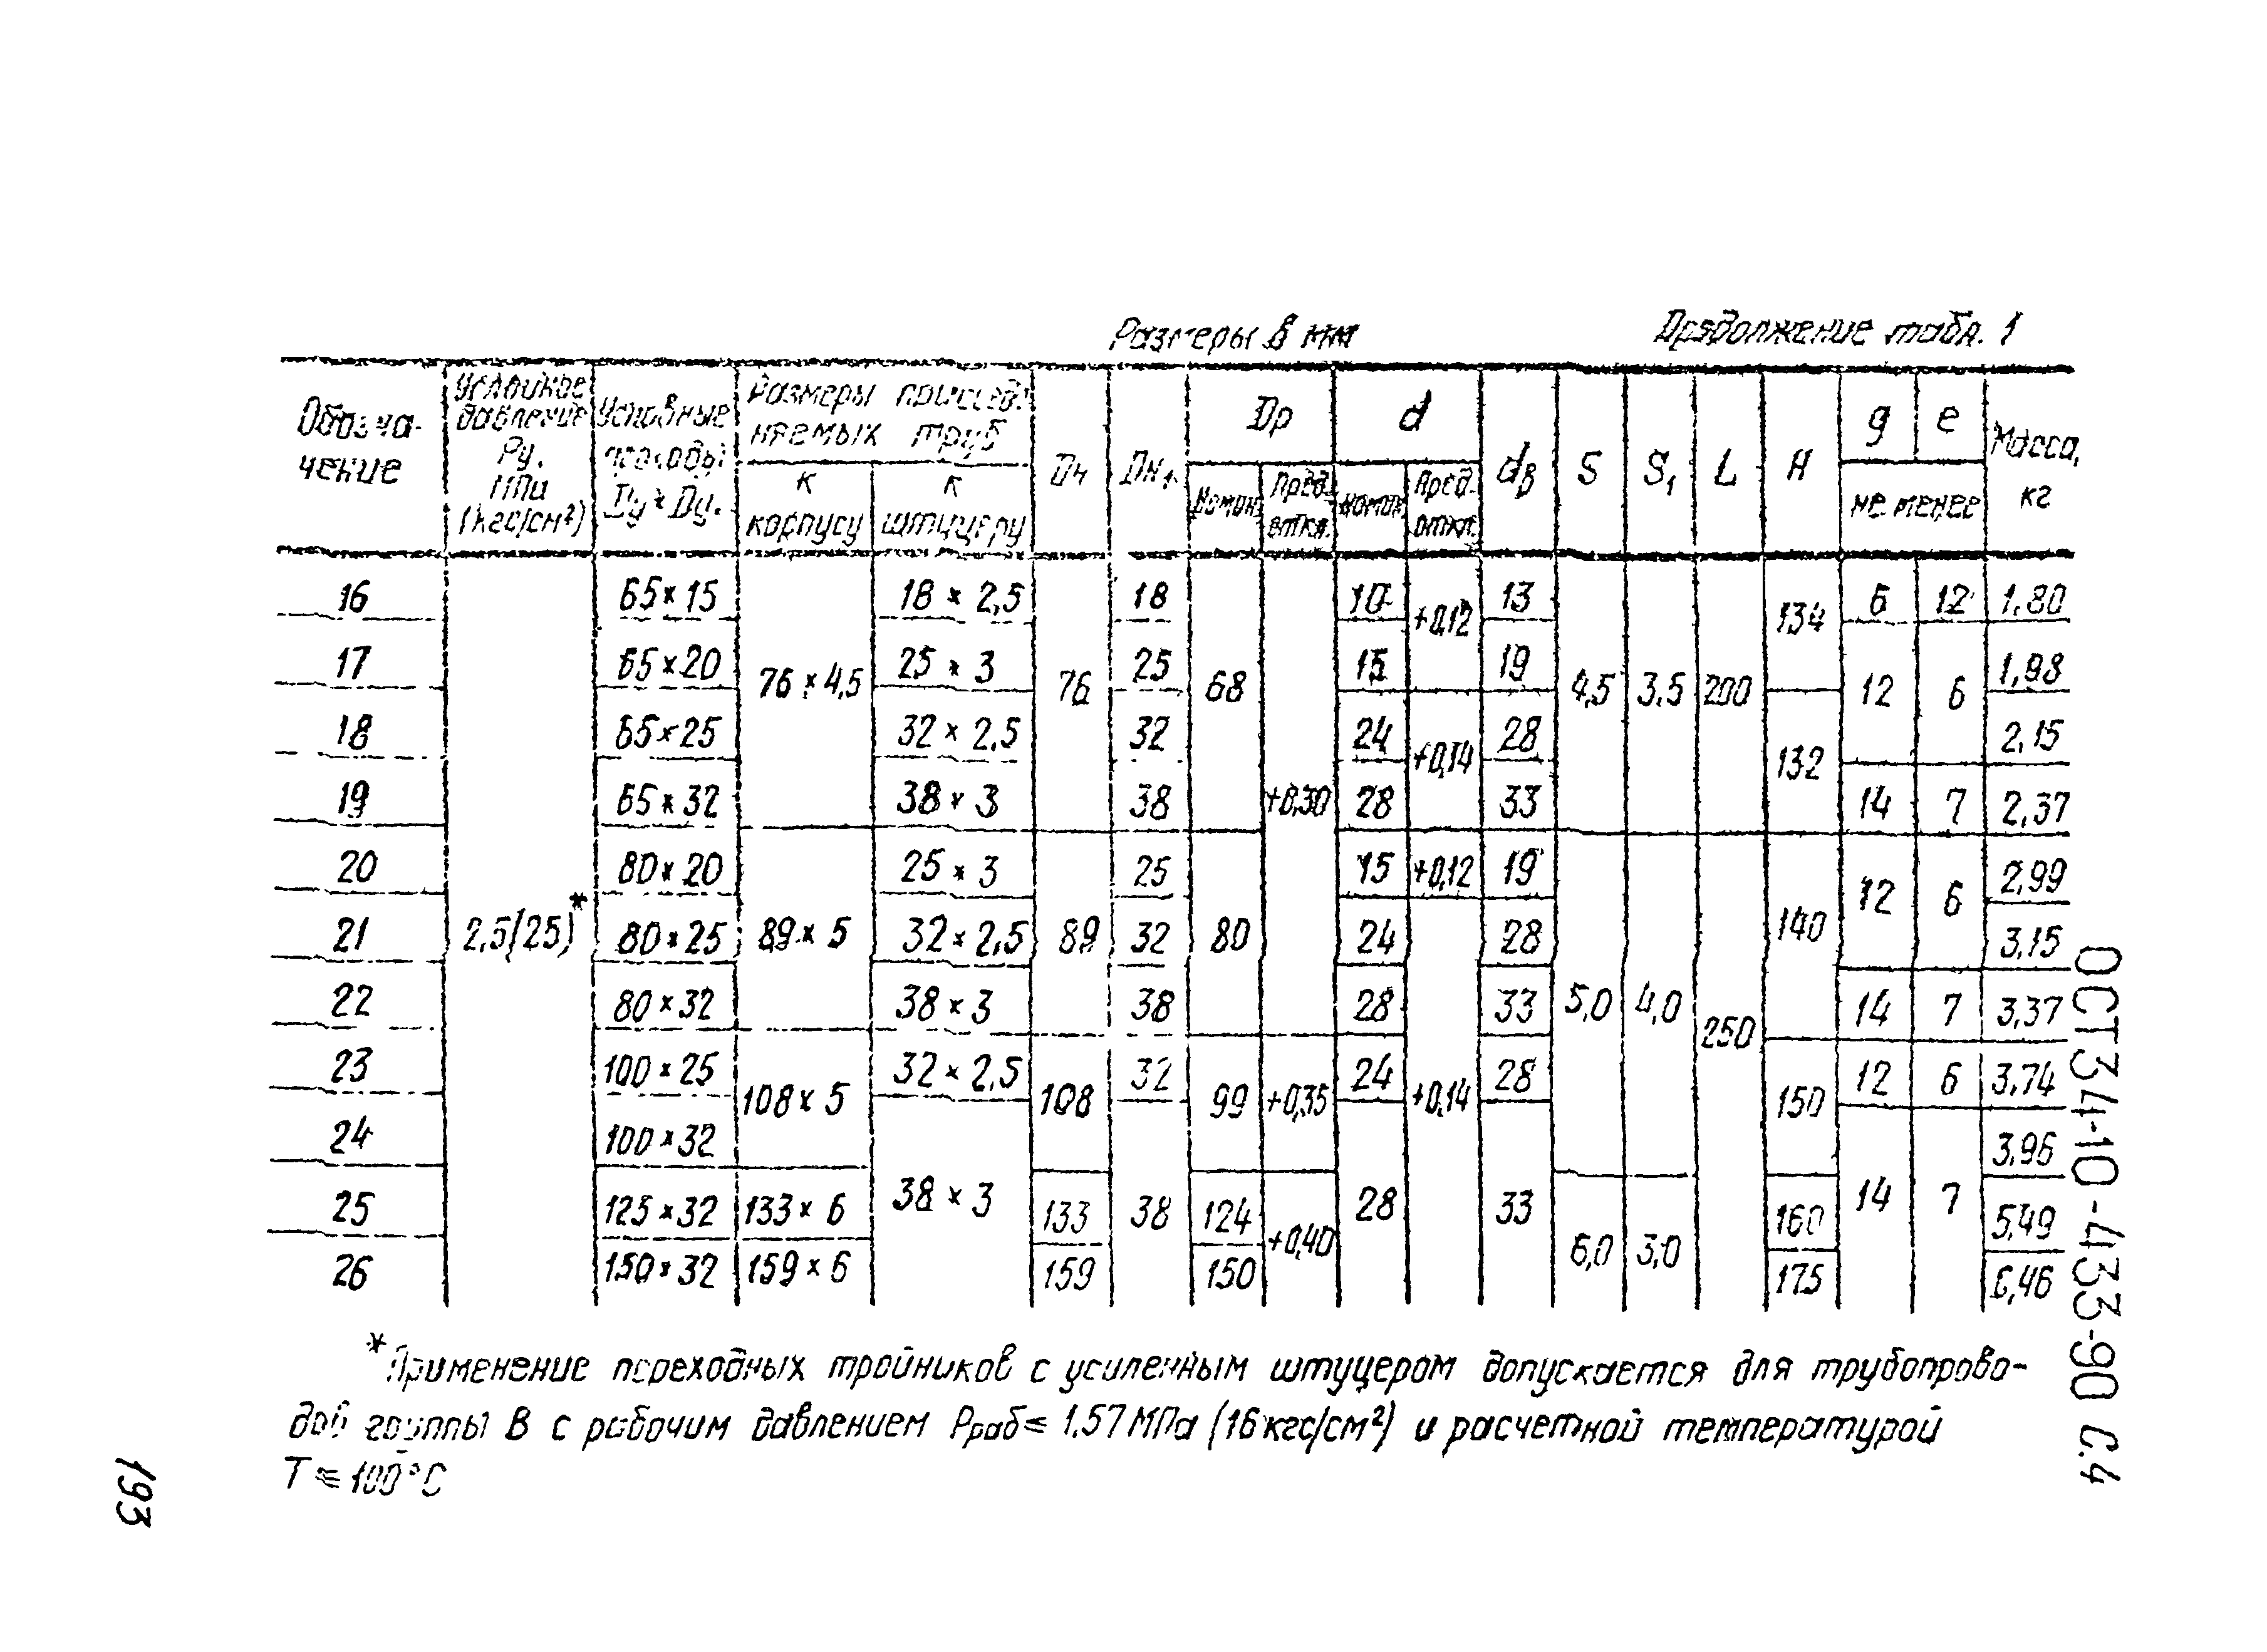 Размеры в мм Продолжение табл. 1
Обозначение | Условное давление Ру, МПа (кгс/см²) | Условные проходы Dу × Dу₁ | Размеры присоединяемых труб | Dн | Dн₁ | Dр | d | dв | S | S₁ | L | H | g | e | Масса, кг
к корпусу | к штуцеру | Номин. | Пред. откл. | номин. | Пред. откл. | не менее
16 | 65×15 | 18×2,5 | 18 | 10 | +0,12 | 13 | 134 | 6 | 12 | 1,80
17 | 65×20 | 76×4,5 | 25×3 | 76 | 25 | 68 | 15 | 19 | 4,5 | 3,5 | 200 | 12 | 6 | 1,98
18 | 65×25 | 32×2,5 | 32 | 24 | +0,14 | 28 | 132 | 2,15
19 | 65×32 | 38×3 | 38 | +0,30 | 28 | 33 | 14 | 7 | 2,37
20 | 80×20 | 25×3 | 25 | 15 | +0,12 | 19 | 12 | 6 | 2,99
21 | 2,5(25)* | 80×25 | 89×5 | 32×2,5 | 89 | 32 | 80 | 24 | 28 | 140 | 3,15
22 | 80×32 | 38×3 | 38 | 28 | 33 | 5,0 | 4,0 | 250 | 14 | 7 | 3,37
23 | 100×25 | 108×5 | 32×2,5 | 108 | 32 | 99 | +0,35 | 24 | +0,14 | 28 | 150 | 12 | 6 | 3,74
24 | 100×32 | 3,96
25 | 125×32 | 133×6 | 38×3 | 133 | 38 | 124 | +0,40 | 28 | 33 | 6,0 | 3,0 | 160 | 14 | 7 | 5,49
26 | 150×32 | 159×6 | 159 | 150 | 175 | 6,46
*Применение переходных тройников с усиленным штуцером допускается для трубопрово-
дов группы В с рабочим давлением Рраб ≤ 1,57 МПа (16 кгс/см²) и расчетной температурой
Т ≤ 100°С
ОСТ 34-10-433-90 С.4
193